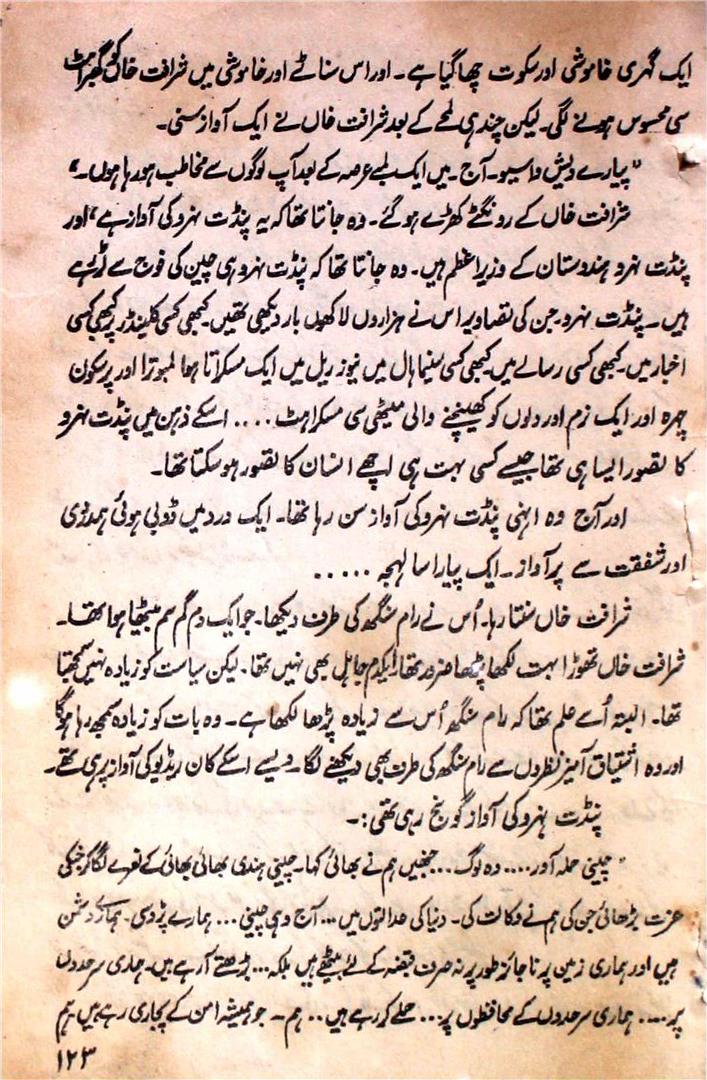 ایک گہری خاموشی اور سکوت چھا گیا ہے۔ اور اس سناٹے اور خاموشی میں شرافت خاں کو گھبراہٹ
سی محسوس ہونے لگی۔ لیکن چند ہی لمحے کے بعد شرافت خاں نے ایک آواز سنی۔
”پیارے دیش واسیو۔ آج۔ میں ایک لمبے عرصہ کے بعد آپ لوگوں سے مخاطب ہو رہا ہوں۔“
شرافت خاں کے رونگٹے کھڑے ہو گئے۔ وہ جانتا تھا کہ یہ پنڈت نہرو کی آواز ہے، اور
پنڈت نہرو ہندوستان کے وزیراعظم ہیں۔ وہ جانتا تھا کہ پنڈت نہرو ہی چین کی فوج سے لڑ رہے
ہیں۔ پنڈت نہرو۔ جن کی تصاویر اس نے ہزاروں لاکھوں بار دیکھی تھیں۔ کبھی کسی کلینڈر پر کبھی کسی
اخبار میں۔ کبھی کسی رسالے میں کبھی کسی سنیما ہال میں نیوز ریل میں ایک مسکراتا ہوا لمبوترا اور پرسکون
چہرہ اور ایک نرم اور دلوں کو کھینچنے والی میٹھی سی مسکراہٹ .... اسکے ذہن میں پنڈت نہرو
کا تصور ایسا ہی تھا جیسے کسی بہت ہی اچھے انسان کا تصور ہو سکتا تھا۔
اور آج وہ انہی پنڈت نہرو کی آواز سن رہا تھا۔ ایک درد میں ڈوبی ہوئی ہمدردی
اور شفقت سے پر آواز۔ ایک پیارا سا لہجہ .....
شرافت خاں سنتا رہا۔ اُس نے رام سنگھ کی طرف دیکھا۔ جو ایک دم گم سم بیٹھا ہوا تھا۔
شرافت خاں تھوڑا بہت لکھا پڑھا ضرور تھا۔ ایکدم جاہل بھی نہیں تھا۔ لیکن سیاست کو زیادہ نہیں سمجھتا
تھا۔ البتہ اُسے علم تھا کہ رام سنگھ اُس سے زیادہ پڑھا لکھا ہے۔ وہ بات کو زیادہ سمجھ رہا ہوگا
اور وہ اشتیاق آمیز نظروں سے رام سنگھ کی طرف بھی دیکھنے لگا۔ ویسے اسکے کان ریڈیو کی آواز پر ہی تھے۔
پنڈت نہرو کی آواز گونج رہی تھی:۔
”چینی حملہ آور .... وہ لوگ ... جنھیں ہم نے بھائی کہا۔ چینی ہندی بھائی بھائی کے نعرے لگا کر جنکی
عزت بڑھائی جن کی ہم نے وکالت کی۔ دنیا کی عدالتوں میں ... آج وہی چینی ... ہمارے پڑوسی۔ ہمارے دشمن
ہیں اور ہماری زمین پر ناجائز طور پر نہ صرف قبضہ کے لئے بیٹھے ہیں بلکہ ... بڑھتے آ رہے ہیں۔ ہماری سرحدوں
پر .... ہماری سرحدوں کے محافظوں پر ... حملے کر رہے ہیں .. ہم ۔ جو ہمیشہ امن کے پجاری رہے ہیں۔ ہم
۱۲۳